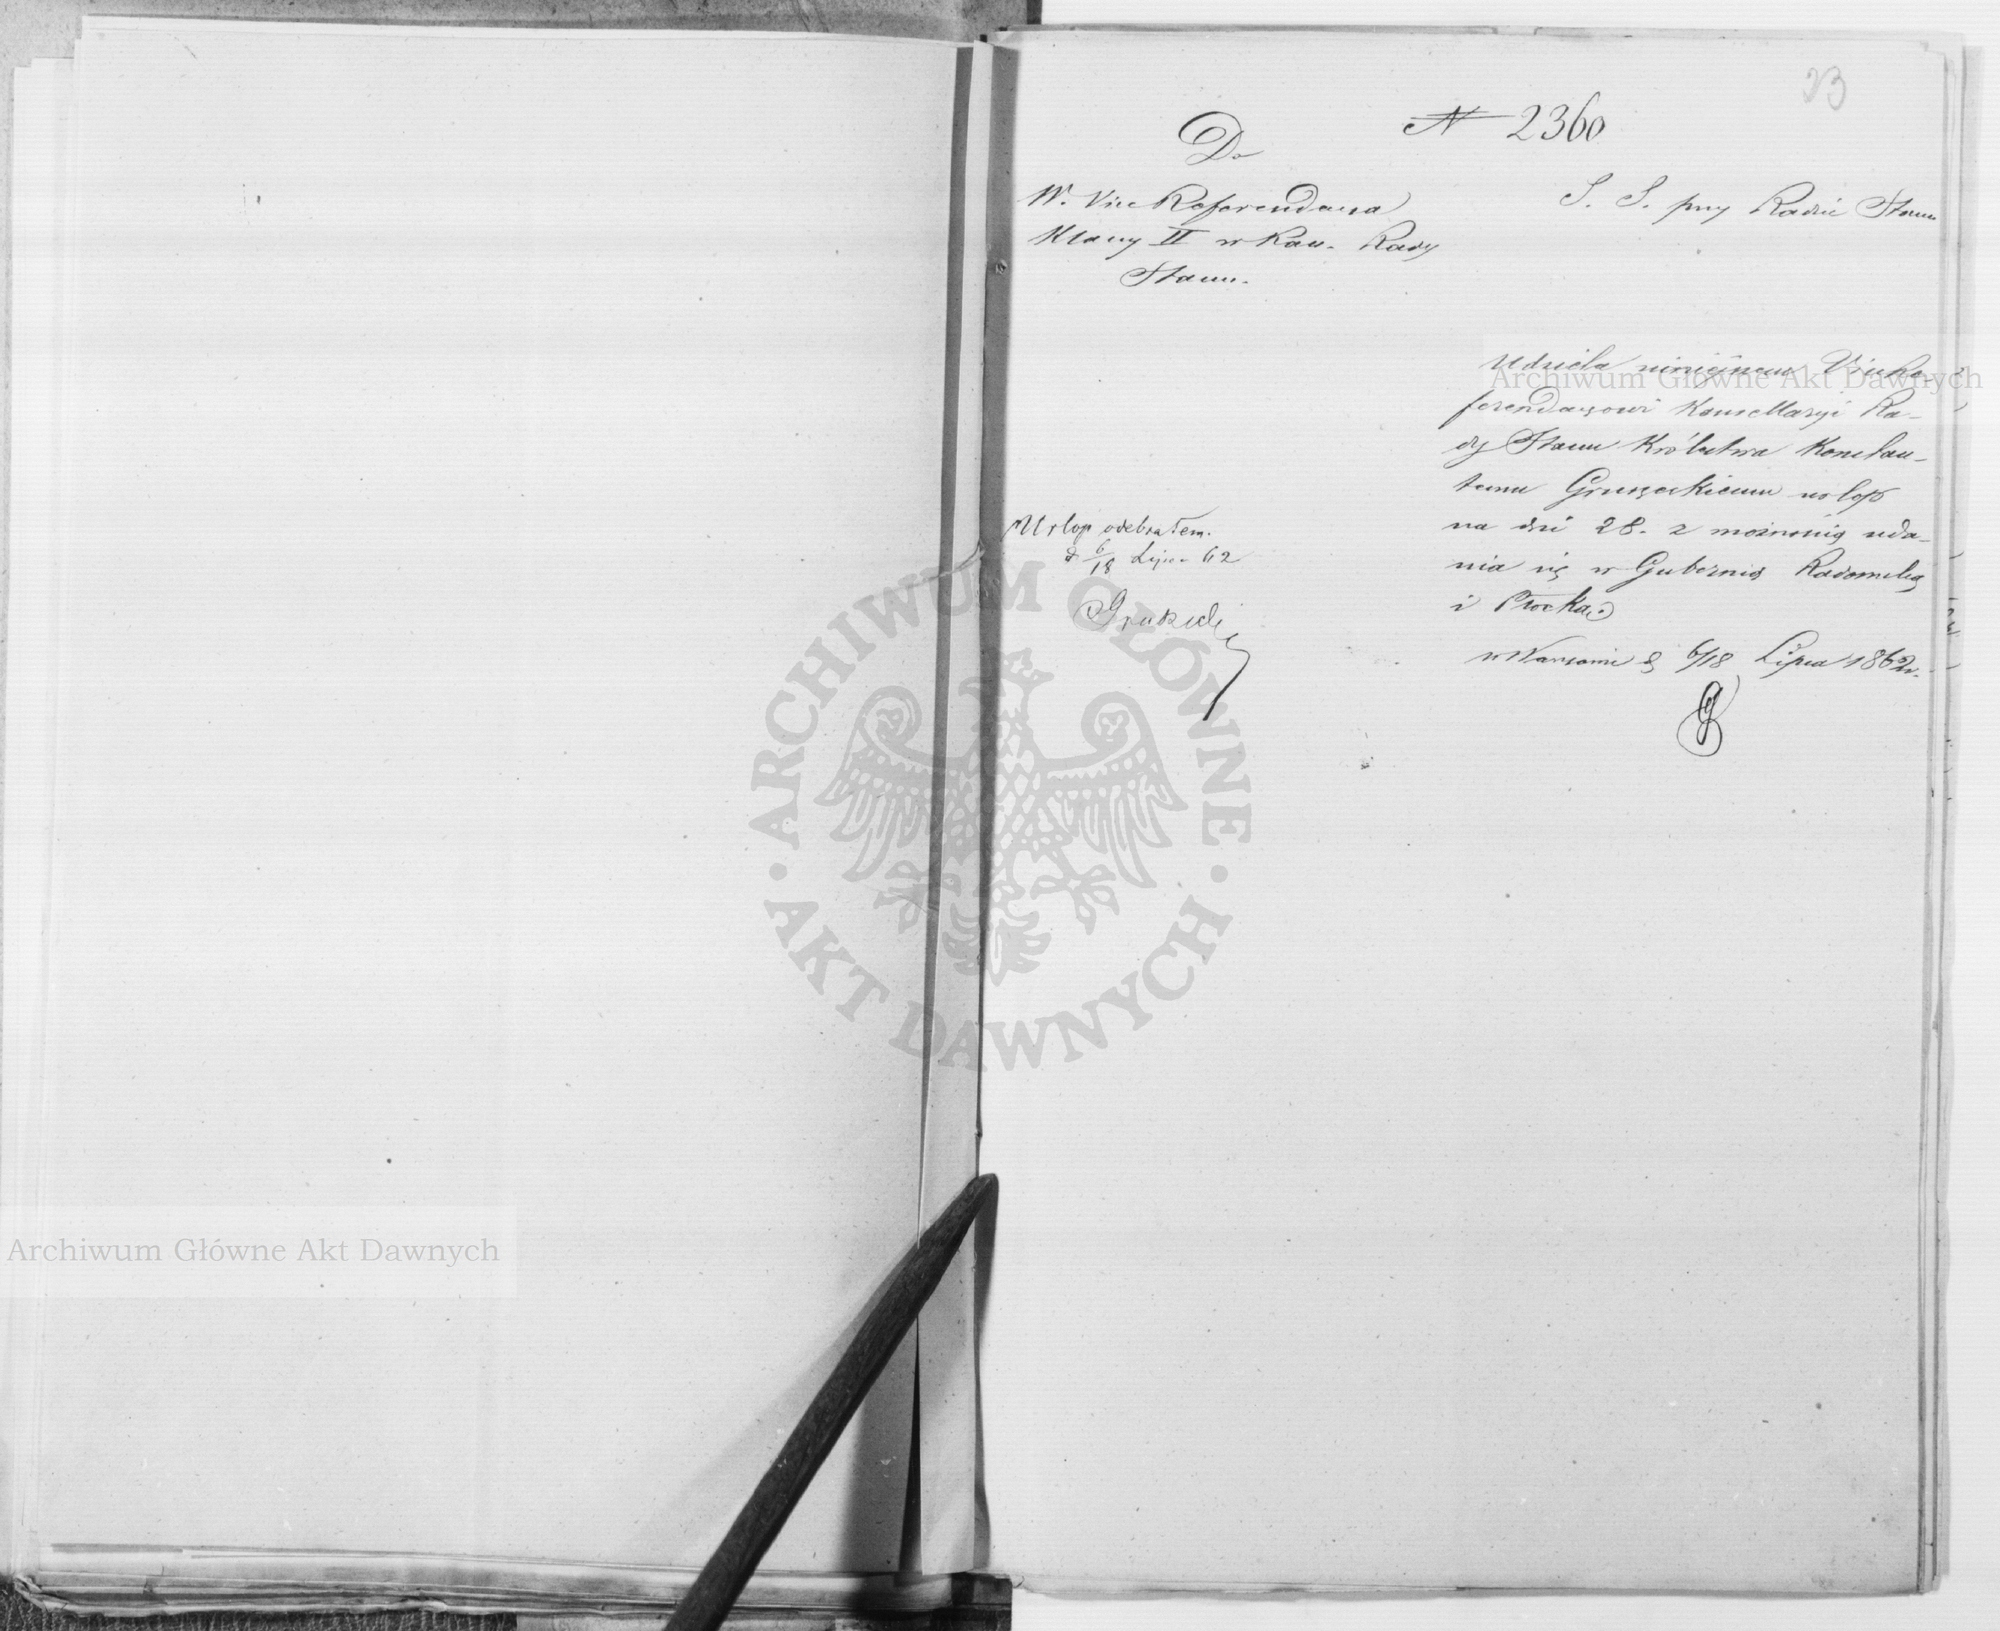 23
N 2360
Do
W. Vice Referendarza
Klassy II w Kan. Rady
Stanu.
S. S. przy Radzie Stanu
Udziela niniejszem Vicere-
ferendarzowi Kancellaryi Ra-
dy Stanu Królestwa Konstan-
temu Gruszeckiemu urlop
na dni 28. z możnością uda-
nia się w Gubernię Radomską
i Płocką.
w Warszawie d. 6/18 Lipca 1862 r.
Urlop odebrałem.
d 6/18 Lipca 62
Archiwum Główne Akt Dawnych
ARCHIWUM GŁÓWNE AKT DAWNYCH
Archiwum Główne Akt Dawnych